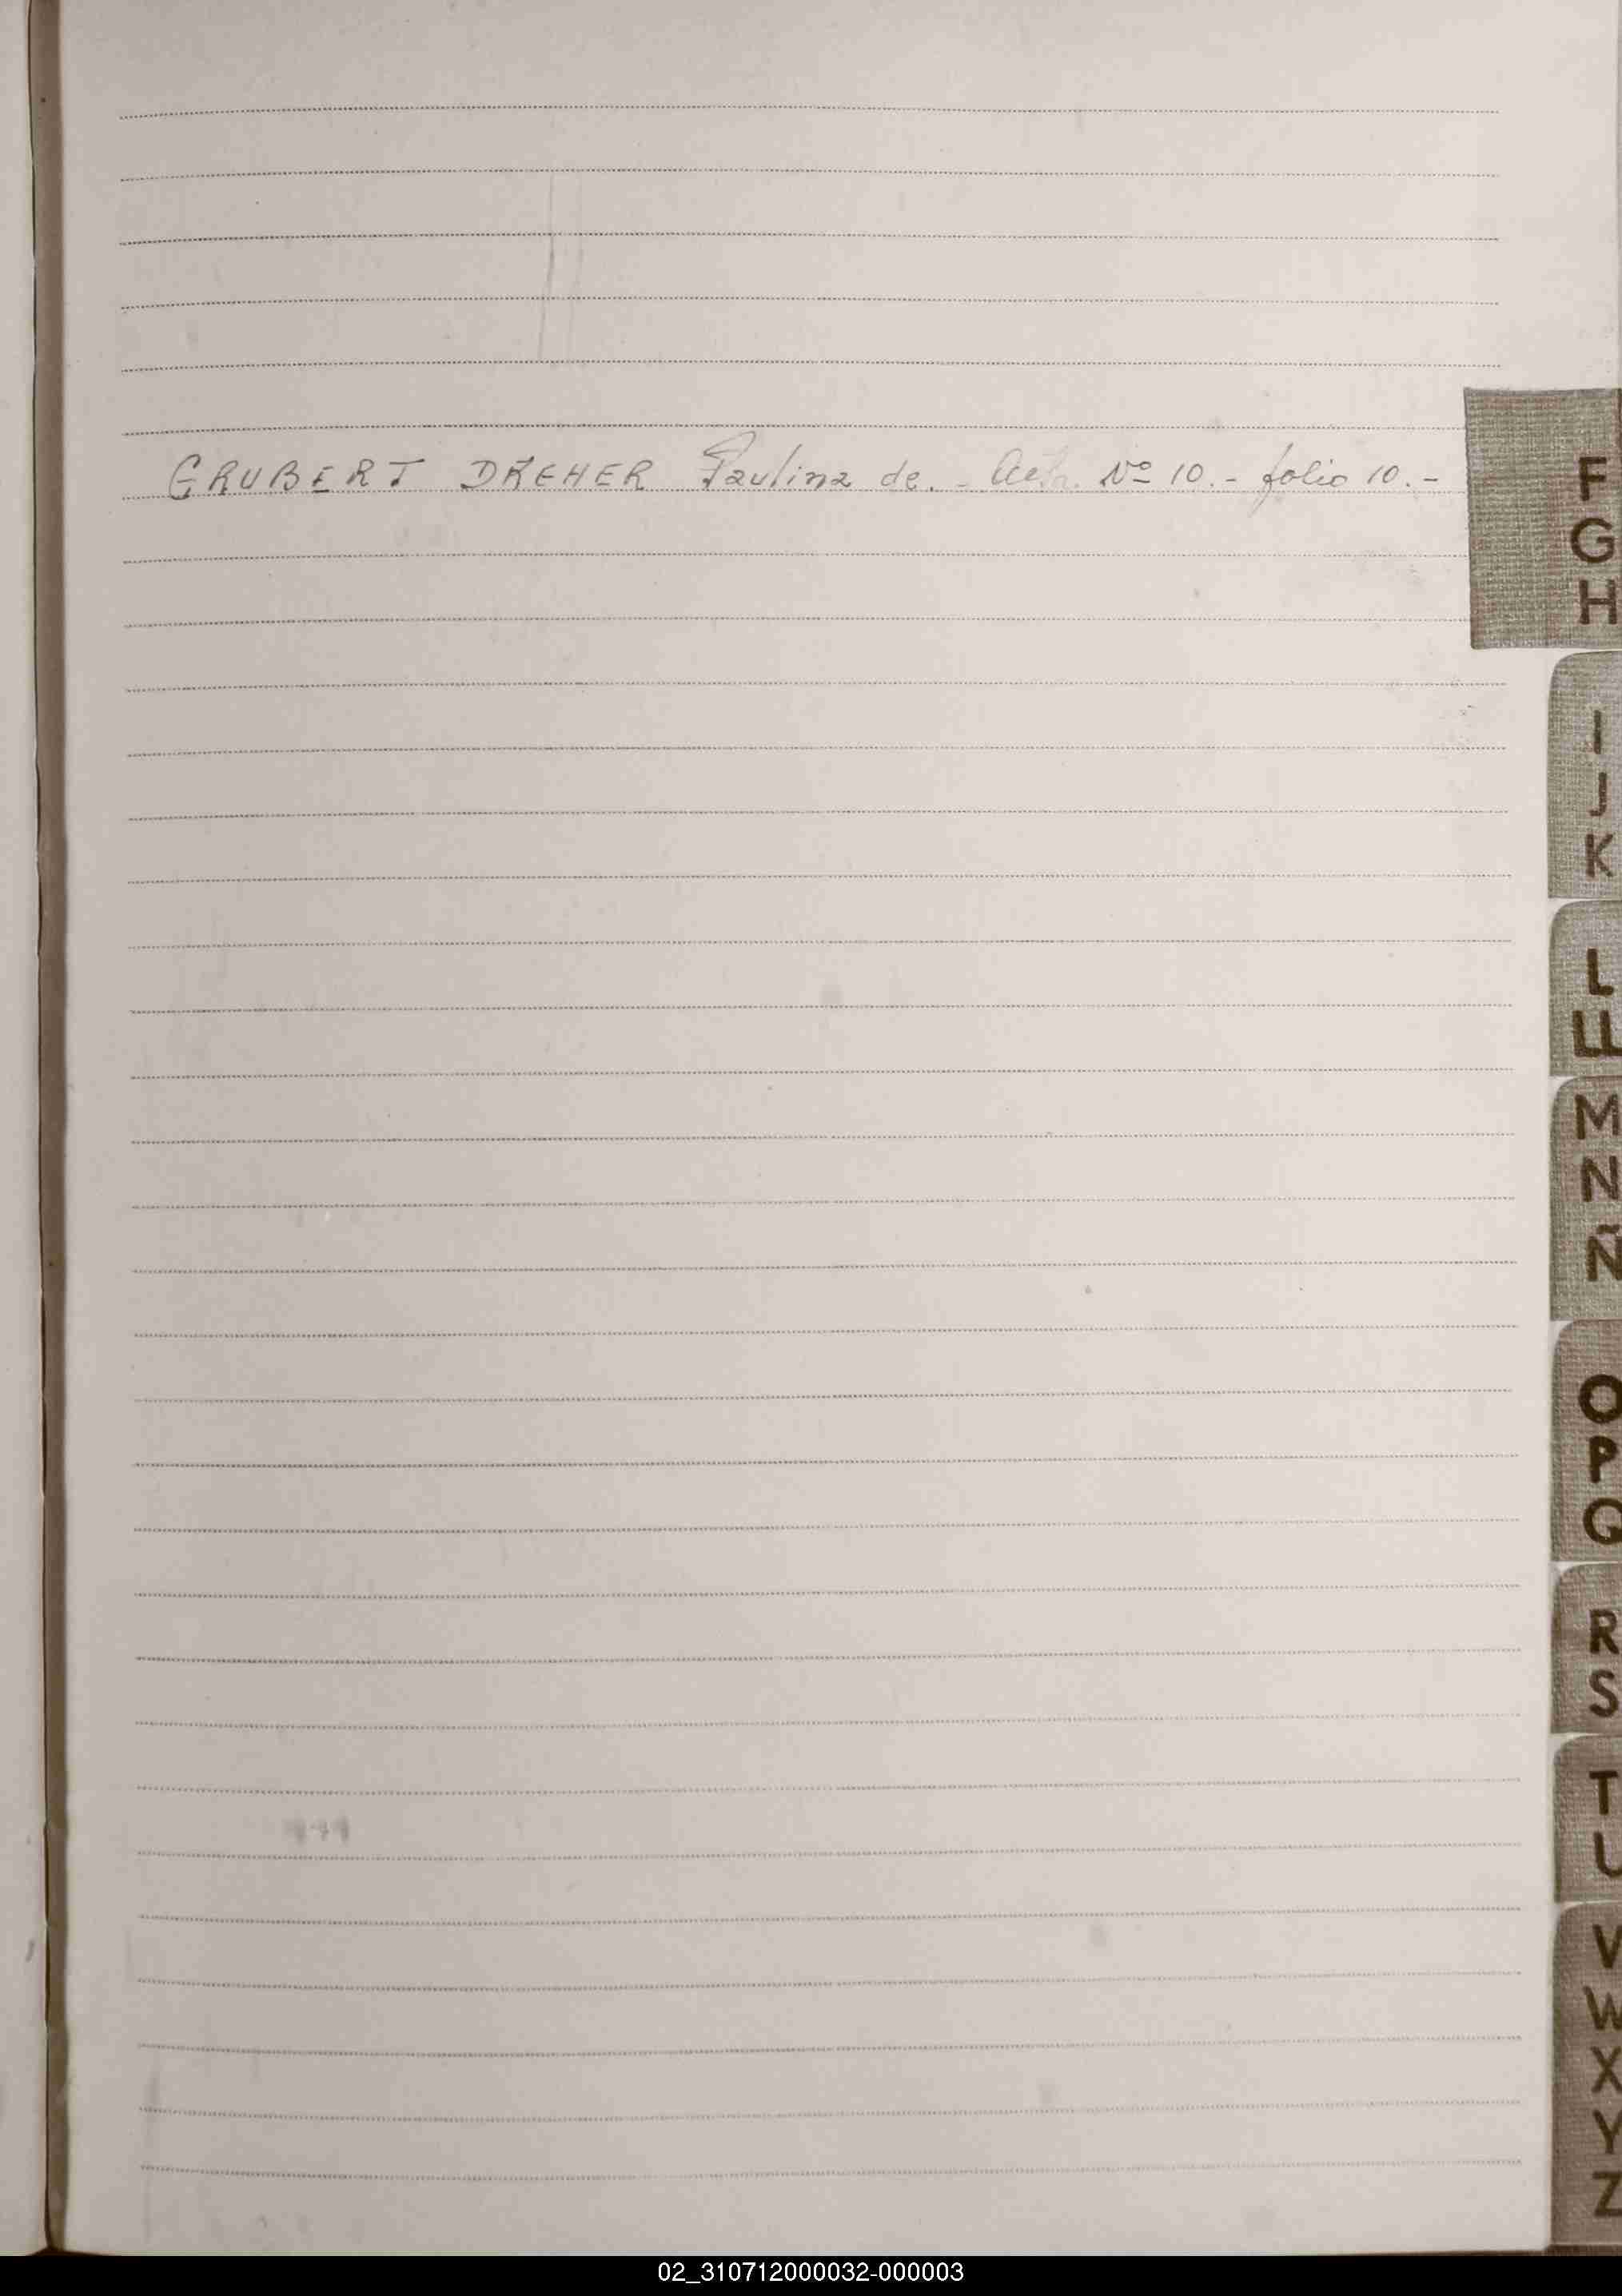 GRUBERT DREHER Paulina de. - Acta. Nº 10.- folio 10.-
F
G
H
I
J
K
L
LL
M
N
Ñ
O
P
Q
R
S
T
U
V
W
X
Y
Z
02_310712000032-000003